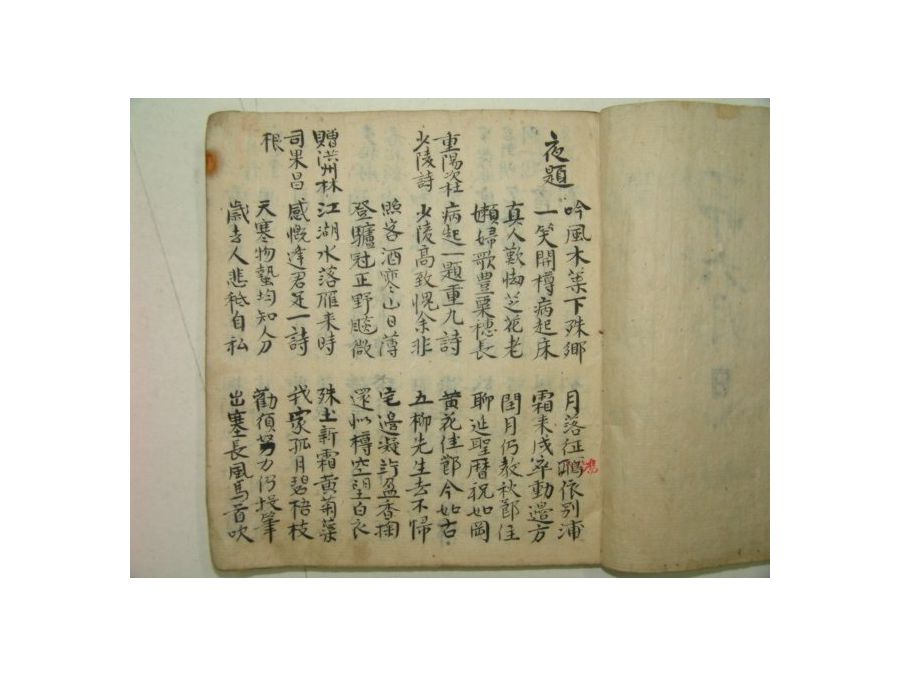 夜題
吟風木葉下殊鄉 月落征鴻依別浦
一笑開樽病起床 霜來戍卒動邊方
真人歎拗芝花老 閏月仍教秋節住
嬾婦歌豊粟穗長 聊延聖曆祝如岡
重陽次杜 病起一題重九詩 黃花佳節今如古
少陵詩 少陵高致愧余非 五柳先生去不歸
照客酒寒山日薄 宅邊凝竚盈香掬
登驢冠正野颷微 還似樽空望白衣
贈洪州林 江湖水落雁来時 殊土新霜黃菊葉
司果昌 感慨逢君足一詩 我家孤月碧梧枝
根 天寒物蟄均知人刀 勸須努力仍投筆
歲去人悲秪自私 出塞長風馬首吹